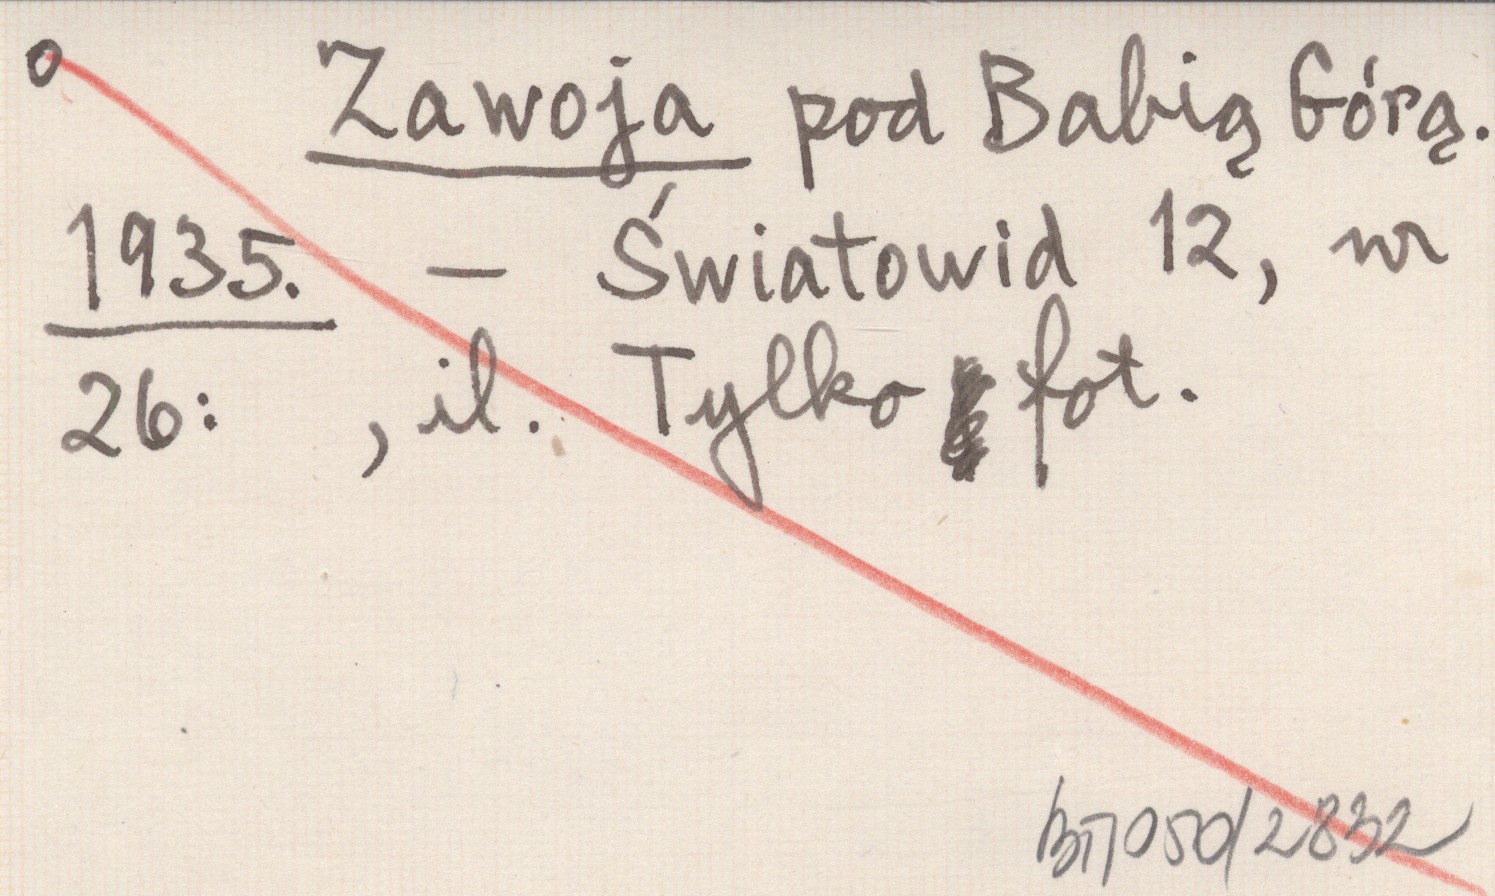 o Zawoja pod Babią Górą.
1935. — Światowid 12, nr
26: , il. Tylko fot.
050/2832